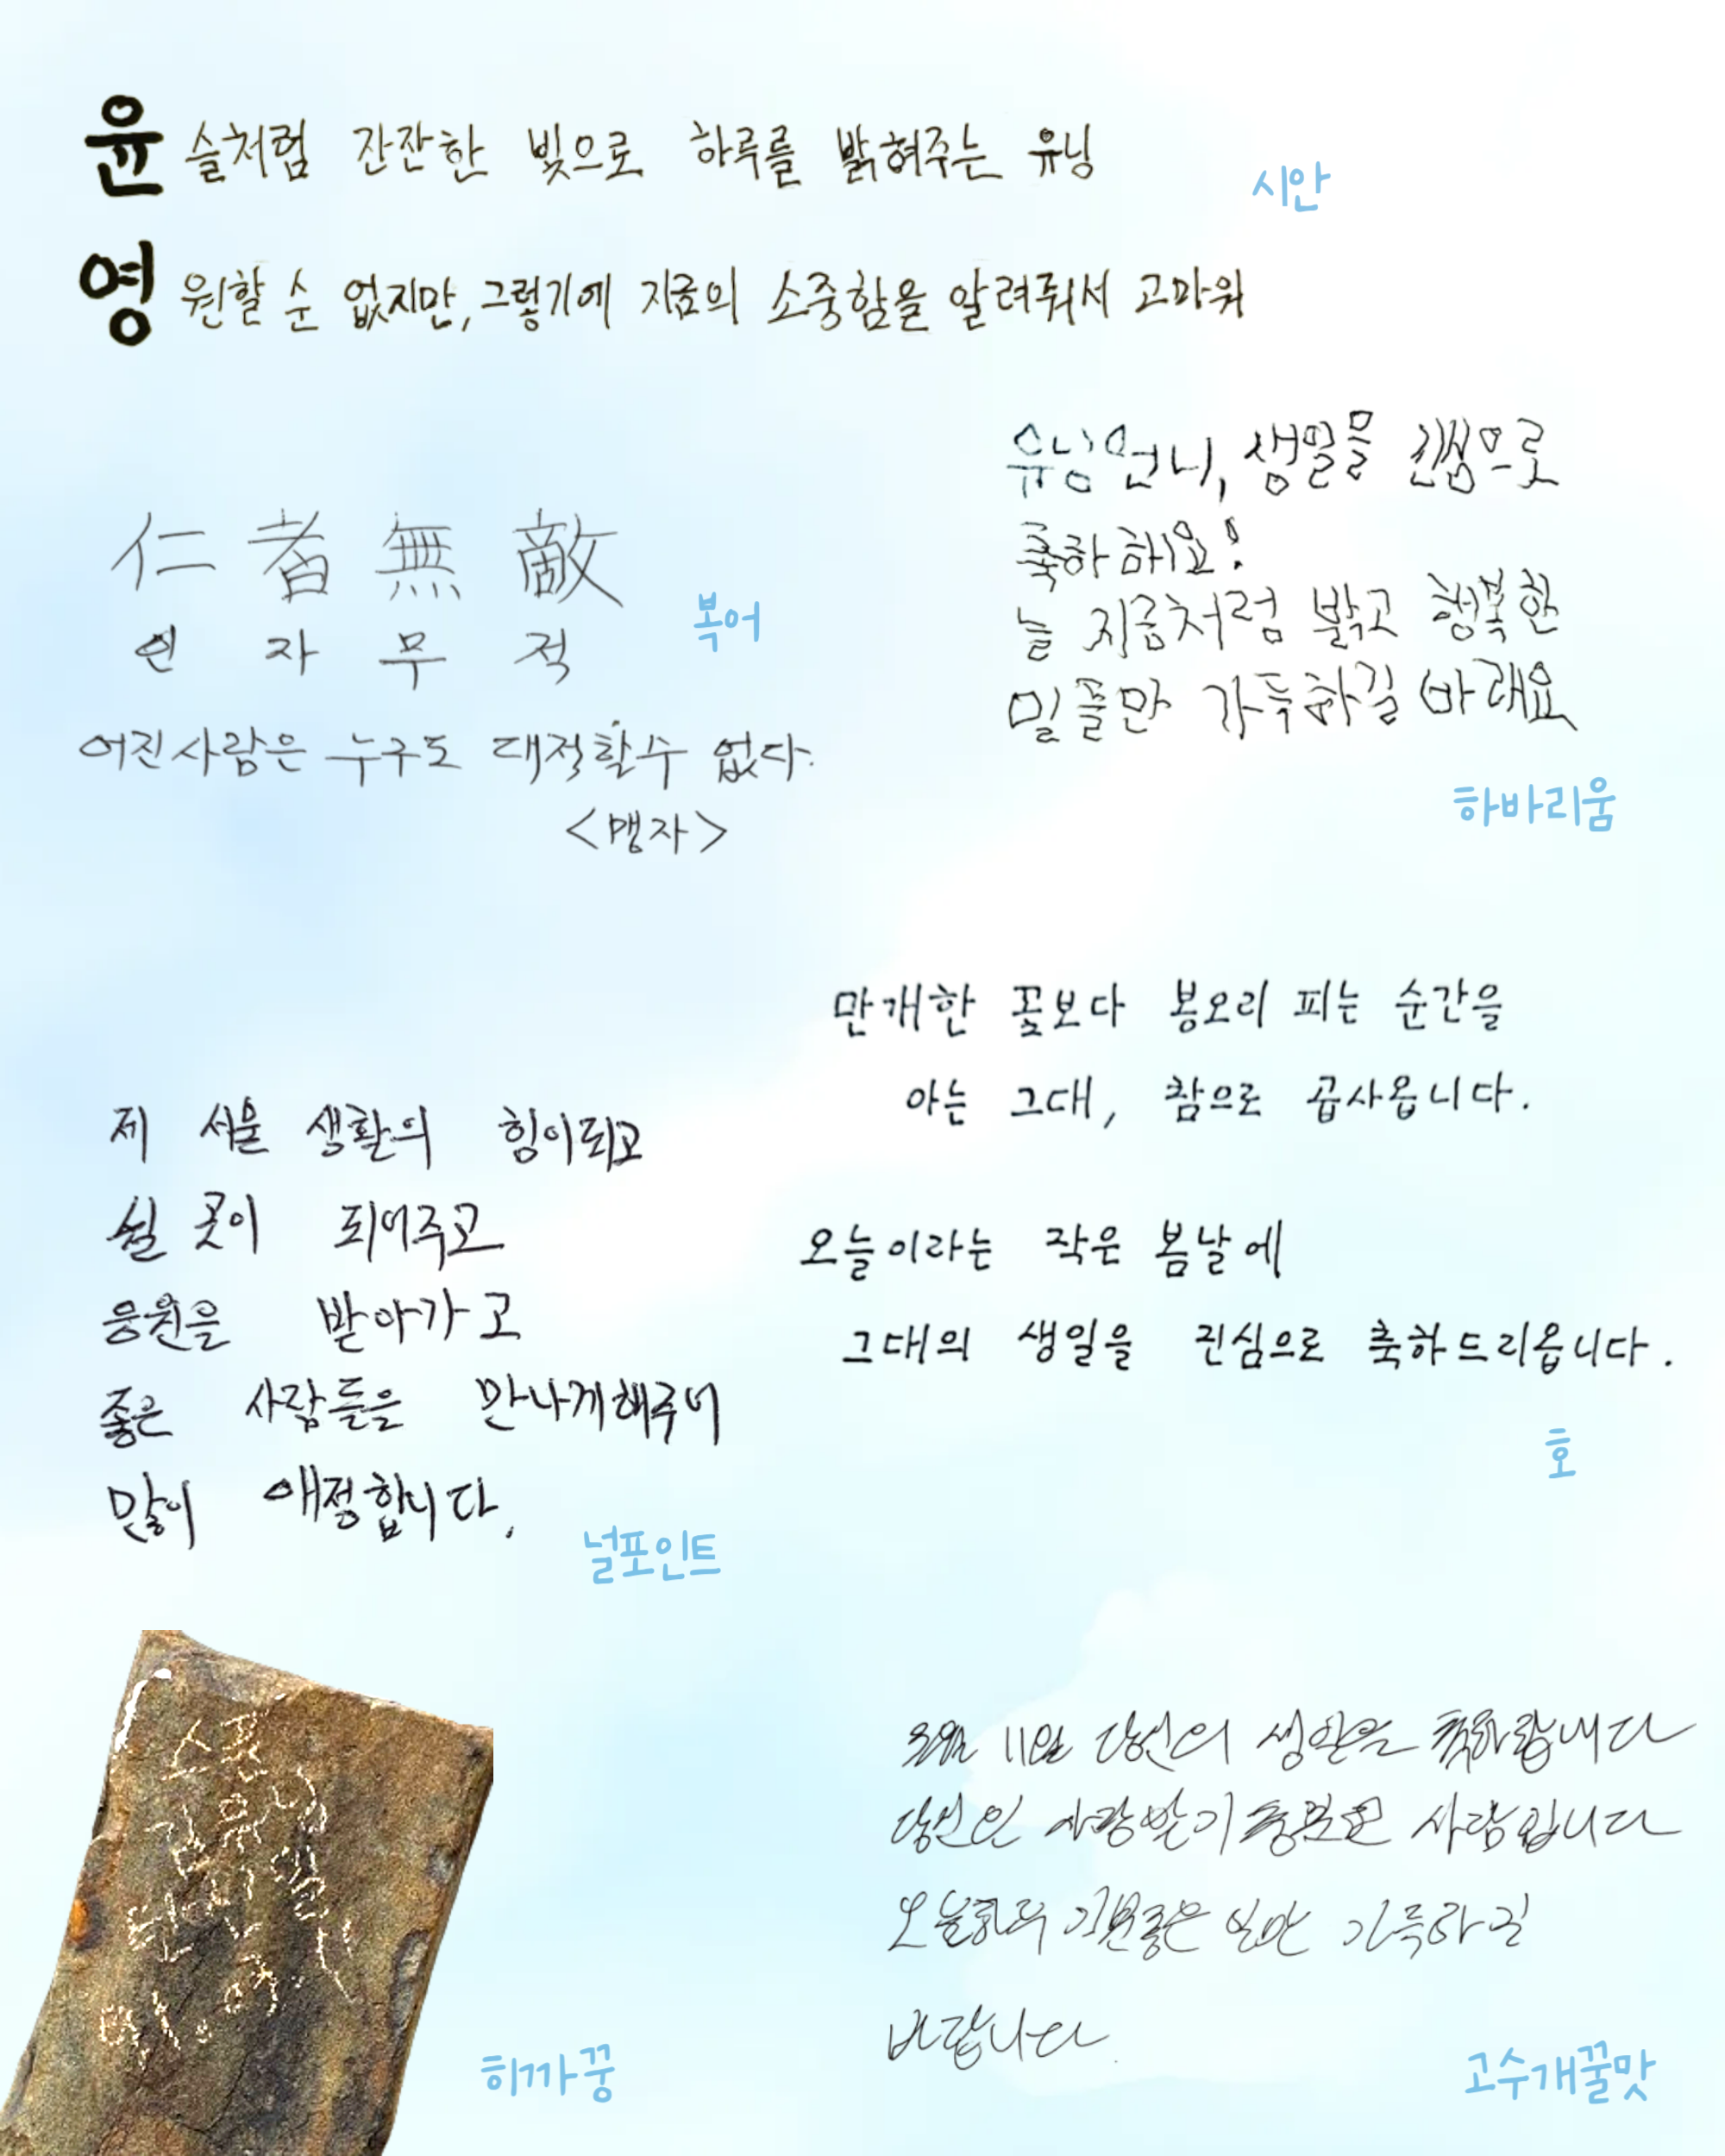 윤슬처럼 잔잔한 빛으로 하루를 밝혀주는 유닝
시안
영원할 순 없지만, 그렇기에 지금의 소중함을 알려줘서 고마워
유닝언니, 생일을 진심으로
축하해요!
늘 지금처럼 밝고 행복한
일들만 가득하길 바래요
하바리움
仁者無敵
인 자 무 적
복어
어진사람은 누구도 대적할수 없다.
<맹자>
만개한 꽃보다 봉오리 피는 순간을
아는 그대, 참으로 곱사옵니다.
오늘이라는 작은 봄날에
그대의 생일을 진심으로 축하드리옵니다.
호
제 서울 생활의 힘이되고
쉴 곳이 되어주고
응원을 받아가고
좋은 사람들을 만나게해주어
많이 애정합니다.
널포인트
히까꿍
11일 당신의 생일을 축하합니다
당신은 사랑받기 충분한 사람입니다
오늘하루 기분좋은 일만 가득하길
바랍니다.
고수개꿀맛